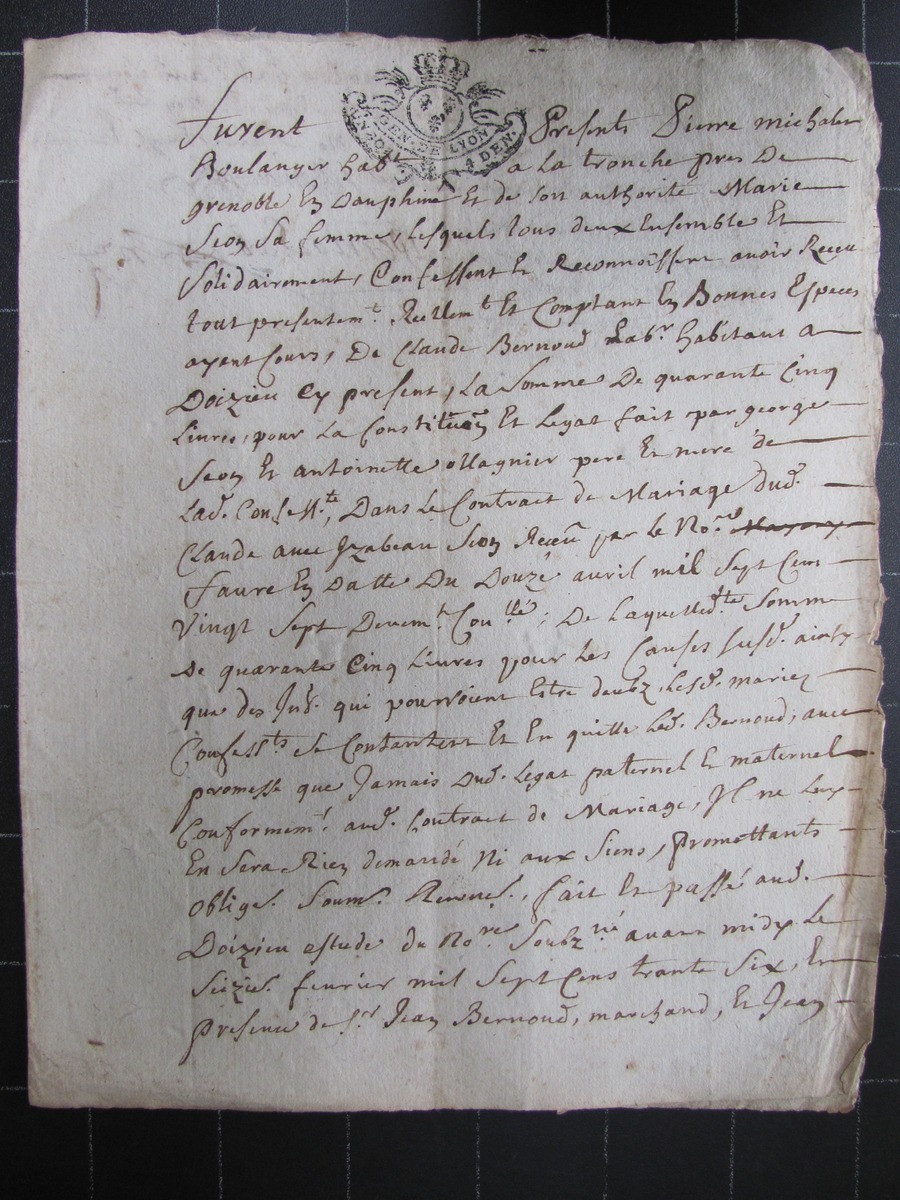 GEN. DE LYON
4 DEN.
furent Presents Pierre michalon
Boulanger hab.t a La tronche pres De
grenoble En Dauphiné Et de son authorité Marie
Seon Sa femme, Lesquels tous deux Ensemble Et
Solidairement, Confessent Et Reconnoissent avoir Receu
tout presentem.t Reellem.t Et Comptant En Bonnes Especes
ayent Cours, De Claude Bernoud Lab.r habitant a
Doizieu Cy present, La Somme De quarante Cinq
Livres, pour La Constitu͠on Et Legat fait par george
Seon Et antoinette ollagnier pere Et mere de
Lad. Confess.te, Dans Le Contract de Mariage dud.
Claude avec Izabeau Seon Receu par Le No.re
faure En Datte Du Douze avril mil Sept Cens
Vingt Sept Devem.t Con.llé, De Laquelled.te Somme
De quarante Cinq Livres pour Les Causes susd. ainsy
que des Int. qui pourroient Estre deubz, Lesd. mariez
Confess.ts se Contantent Et En quitte Led. Bernoud, avec
promesse que Jamais Dud. Legat paternel Et maternel
Conformem.t aud. Contract de Mariage, Il ne Luy
En Sera Rien demandé Ni aux Siens, promettants
oblige. Soum. Renne., fait Et passé aud.
Doizieu estude du No.re Soubz.né avant midy Le
Seizie. fevrier mil Sept Cens trante Six, En
presence de S.r Jean Bernoud, marchand, Et Jean